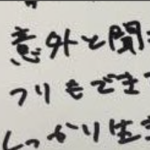 意外と聞
フリもでき
しっかり生